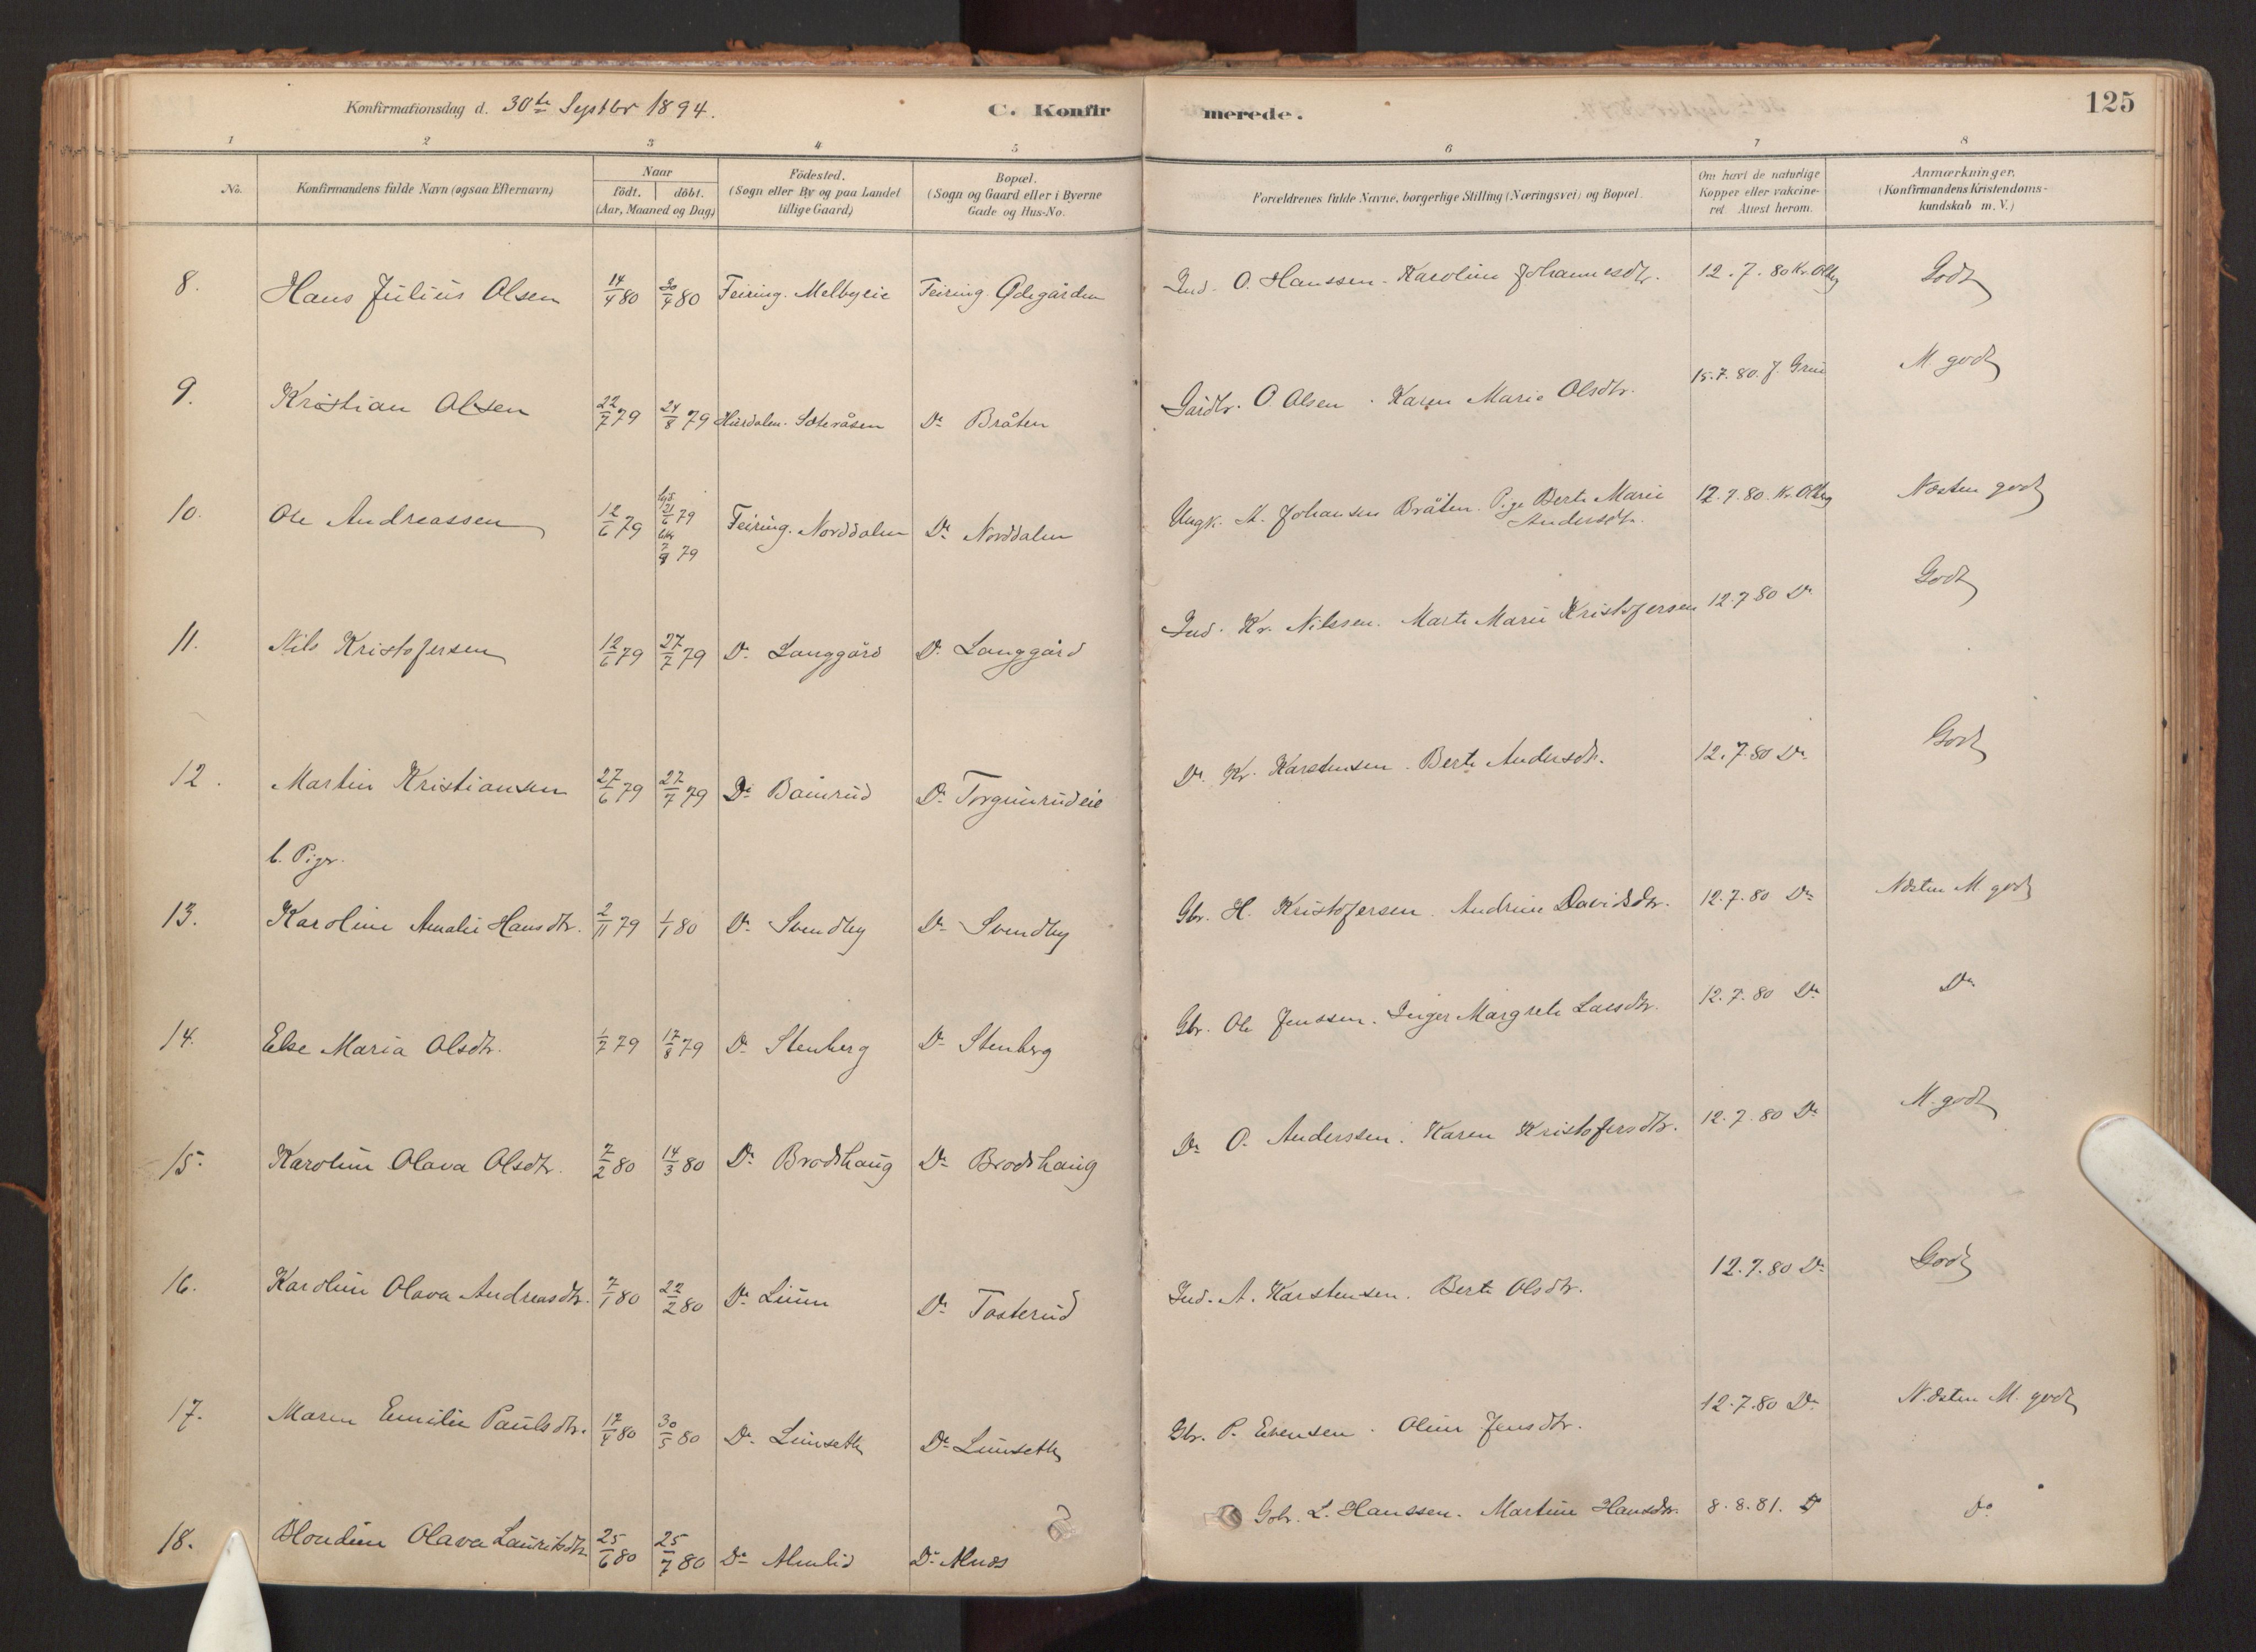 Konfirmationsdag d. 30te Septbr 1894.
C. Konfirmerede.
125
1 2 3 4 5 6 7 8
No.
Konfirmandens fulde Navn (ogsaa Efternavn)
Naar
födt. döbt.
(Aar, Maaned og Dag)
Födested.
(Sogn eller By og paa Landet
tillige Gaard)
Bopæl.
(Sogn og Gaard eller i Byerne
Gade og Hus-No.
Forældrenes fulde Navne, borgerlige Stilling (Næringsvei) og Bopæl.
Om havt de naturlige
Kopper eller vakcine-
ret Attest herom.
Anmærkninger,
(Konfirmandens Kristendoms-
kundskab m. V.)
8. Hans Julius Olsen 14/4 80 30/4 80 Feiring. Melbyeie Feiring. Ødegården Ind. O. Hanssen. Karoline Johannesdtr. 12.7.80 Kr. Olbg Godt
9. Kristian Olsen 22/7 79 24/8 79 Hurdalen. Sæteråsen Do Bråten Gårdbr. O Olsen. Karen Marie Olsdtr. 15.7.80. J. Grue M godt
10. Ole Andreassen 12/6 79 21/6 79 79 Feiring. Norddalen Do Norddalen Ungk. A. Johansen Bråten. Pige Berte Marie
Andersdtr. 12.7.80. Kr. Olbg Næsten godt
11. Nils Kristofersen 12/6 79 27/7 79 Do Langgård Do Langgård Ind. Kr. Nilssen. Marte Marie Kristofersen 12.7 80 Do Godt
12. Martin Kristiansen 27/6 79 27/7 79 Do Do Torgunrudeie Do Kr. Karstensen. Berte Andersdtr. 12.7.80 Do Godt
b. Piger.
13. Karoline Amalie Hansdtr. 2/11 79 1/1 80 Do Svendby Do Svendby Gbr. H. Kristofersen. Andrine Davidsdtr. 12.7.80 Do Næsten M. godt
14. Else Maria Olsdtr. 1/7 79 17/8 79 Do Stenberg Do Stenberg Gbr. Ole Jenssen. Inger Margrete Larsdtr. 12.7.80 Do Do
15. Karoline Olava Olsdtr. 7/2 80 14/3 80 Do Brodshaug Do Brodshaug Do O. Anderssen. Karen Kristofersdtr. 12.7.80 Do M. godt
16. Karoline Olava Andreasdtr. 7/1 80 22/2 80 Do Liun Do Tosterud Ind. A. Karstensen. Berte Olsdtr. 12.7.80 Do Godt
17. Maren Emilie Paulsdtr. 12/4 80 30/5 80 Do Lunseth Do Lunseth Gbr. P. Evensen. Oline Jensdtr. 12.7.80 Do Næsten M. godt
18. Blondine Olava Lauritsdtr 25/6 80 25/7 80 Do Almlid Do Alnæs Gbr. L. Hanssen. Martine Hansdtr. 8.8.81. D Do